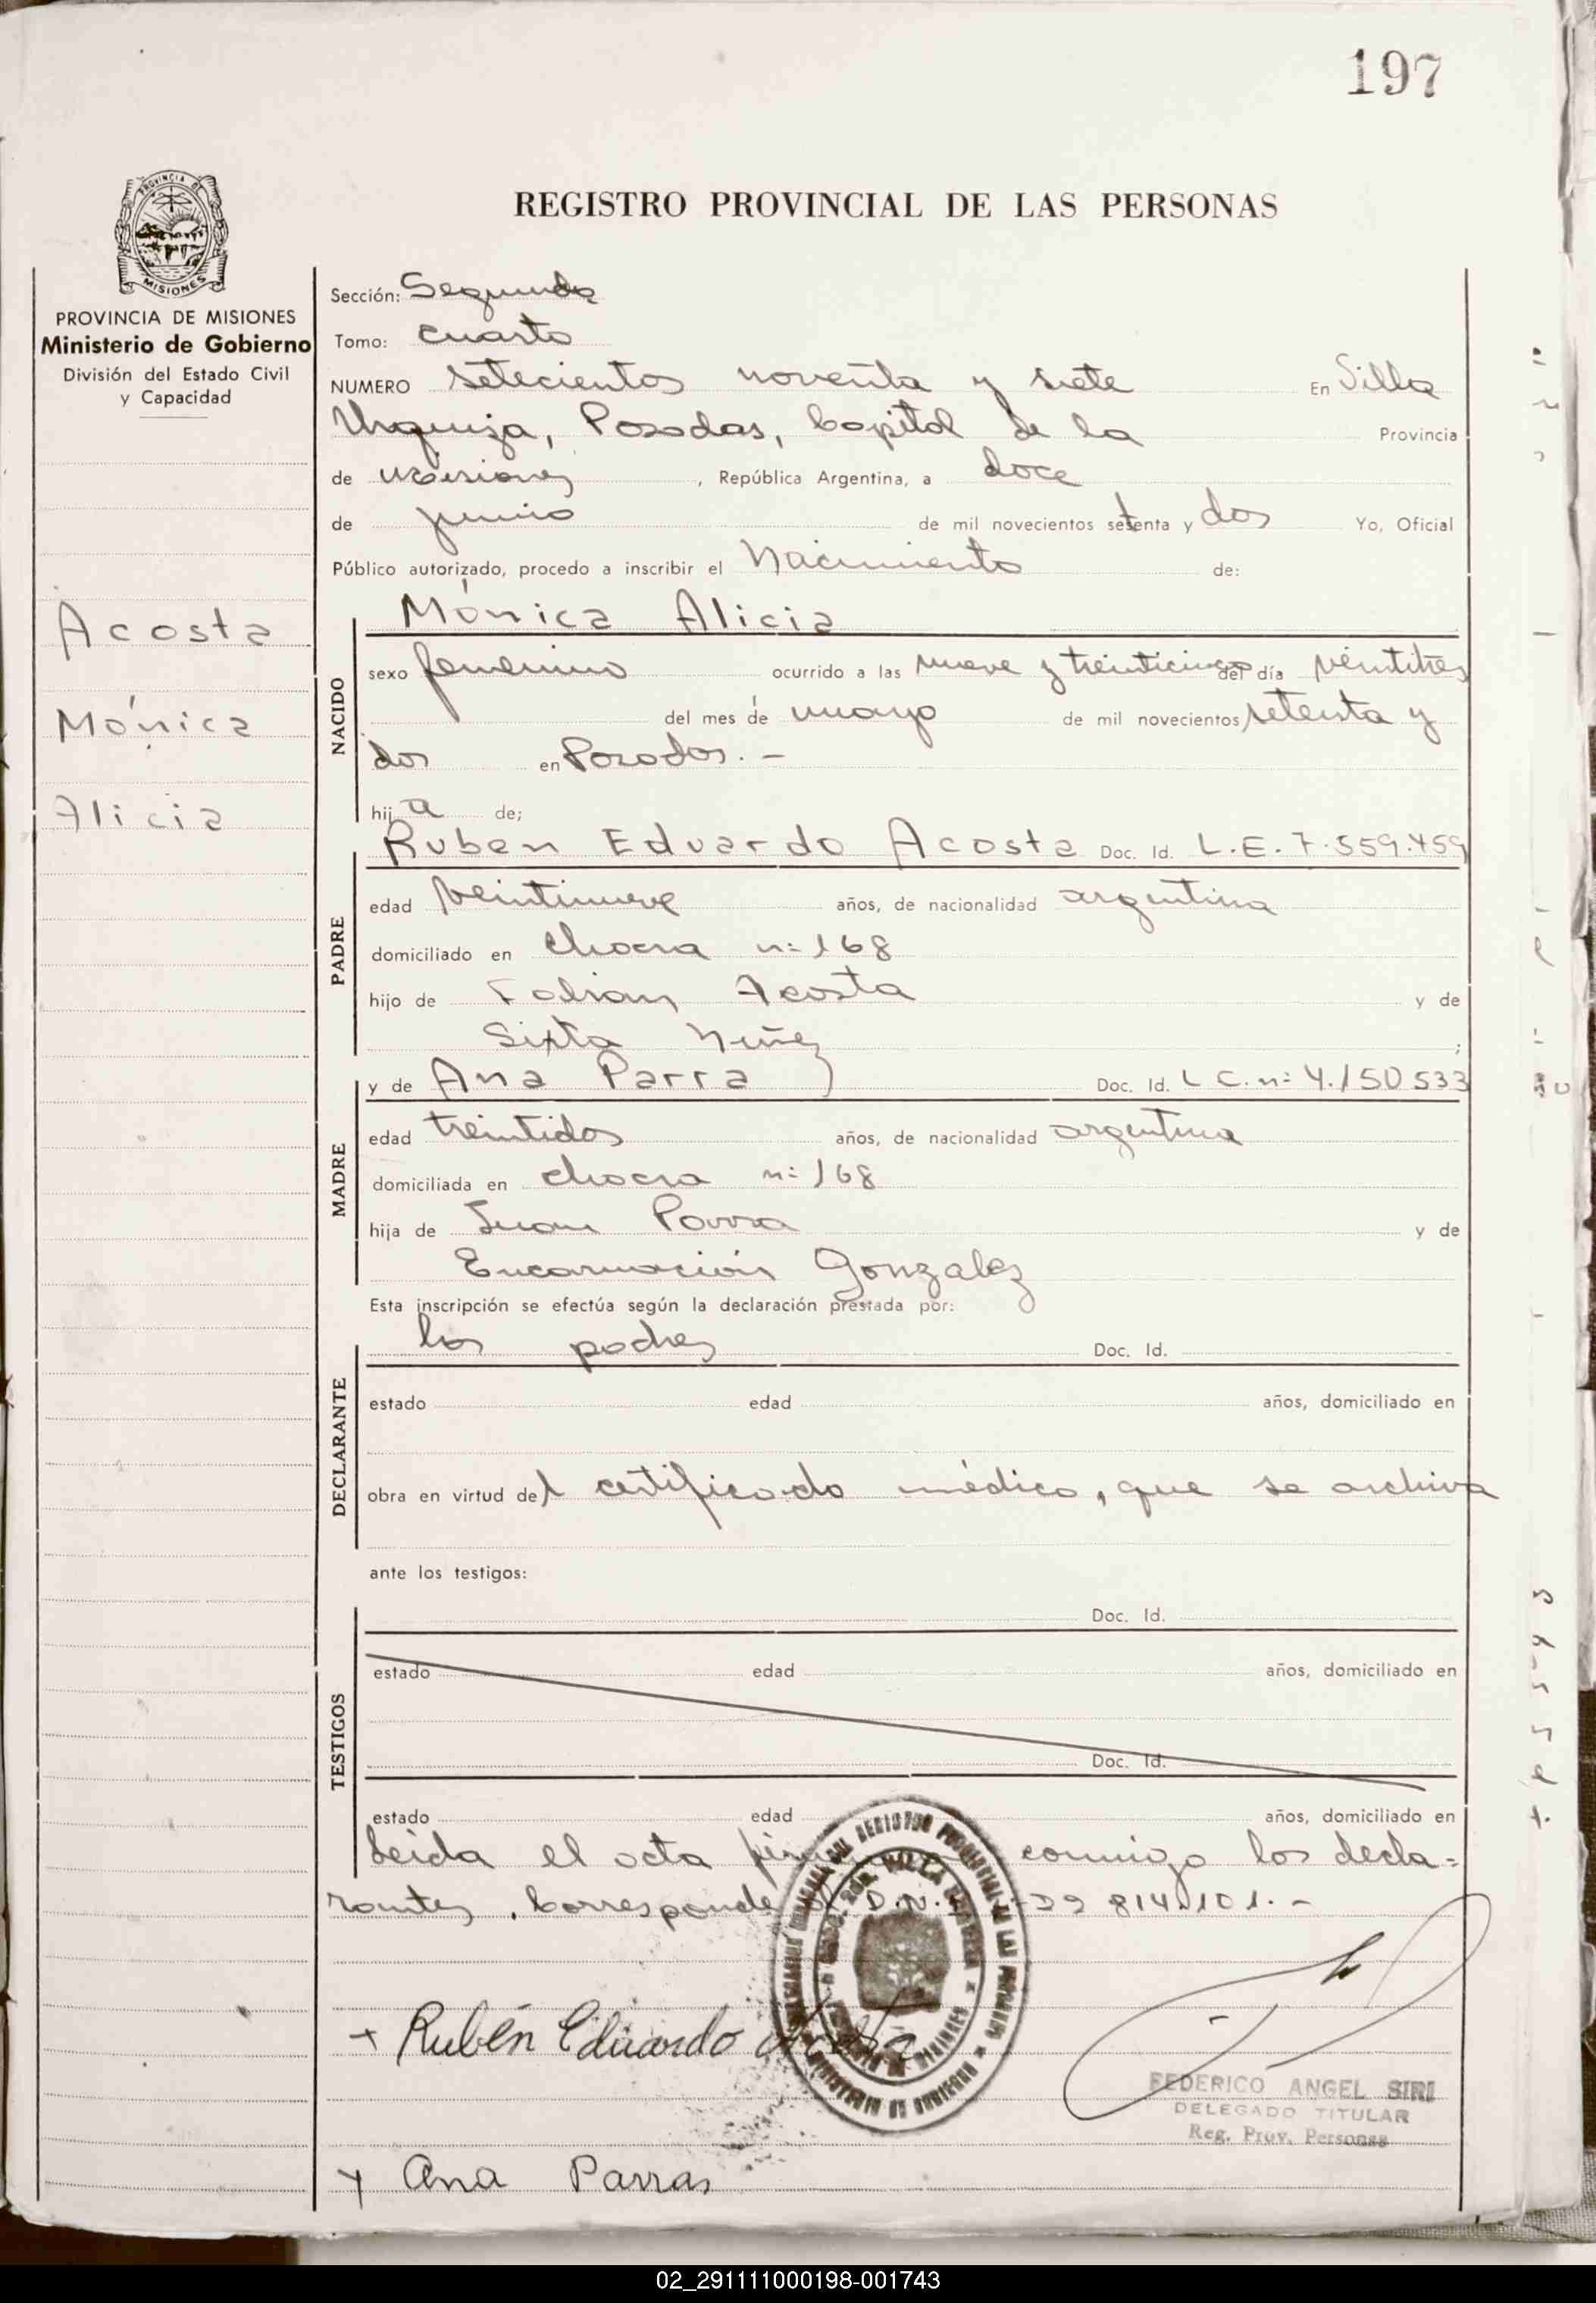 197
PROVINCIA DE MISIONES
REGISTRO PROVINCIAL DE LAS PERSONAS
PROVINCIA DE MISIONES
Ministerio de Gobierno
División del Estado Civil
y Capacidad
Acosta
Mónica
Alicia
Sección: Segunda
Tomo: cuarto
NUMERO setecientos noventa y siete En Villa
Urquiza, Posadas, Capital de la Provincia
de Misiones, República Argentina, a doce
de junio de mil novecientos setenta y dos Yo, Oficial
Público autorizado, procedo a inscribir el Nacimiento de:
NACIDO
Mónica Alicia
sexo femenino ocurrido a las nueve y treinticinco del día veintitres
del mes de mayo de mil novecientos setenta y
dos en Posadas. -
hija de;
PADRE
Ruben Eduardo Acosta Doc. Id. L.E. 7.559.459
edad veintinueve años, de nacionalidad argentina
domiciliado en chacra n: 168
hijo de Fabian Acosta y de
Sixta Nuñez ;
MADRE
y de Ana Parra Doc. Id. L C. n: 4.150533
edad treintidos años, de nacionalidad argentina
domiciliada en chacra n: 168
hija de Juan Parra y de
Encarnación Gonzalez
Esta inscripción se efectúa según la declaración prestada por:
DECLARANTE
los padres Doc. Id.
estado edad años, domiciliado en
obra en virtud del certificado médico, que se archiva
ante los testigos:
TESTIGOS
Doc. Id.
estado edad años, domiciliado en
Doc. Id.
estado edad años, domiciliado en
Leida el acta conmigo los decla=
rantes. Corresponde D.N. 22 814.101. -
+ Rubén Eduardo Acosta
FEDERICO ANGEL SIRI
DELEGADO TITULAR
Reg. Prov. Personas
+ Ana Parras
02_291111000198-001743